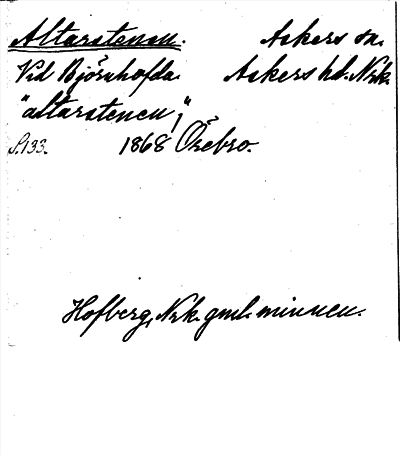 Altarstenen. Askers sn.
Vid Björnhofda. Askers hd. Nrk.
"altarstenen,"
S.133. 1868 Örebro.
Hofberg, Nrk. gml. minnen.